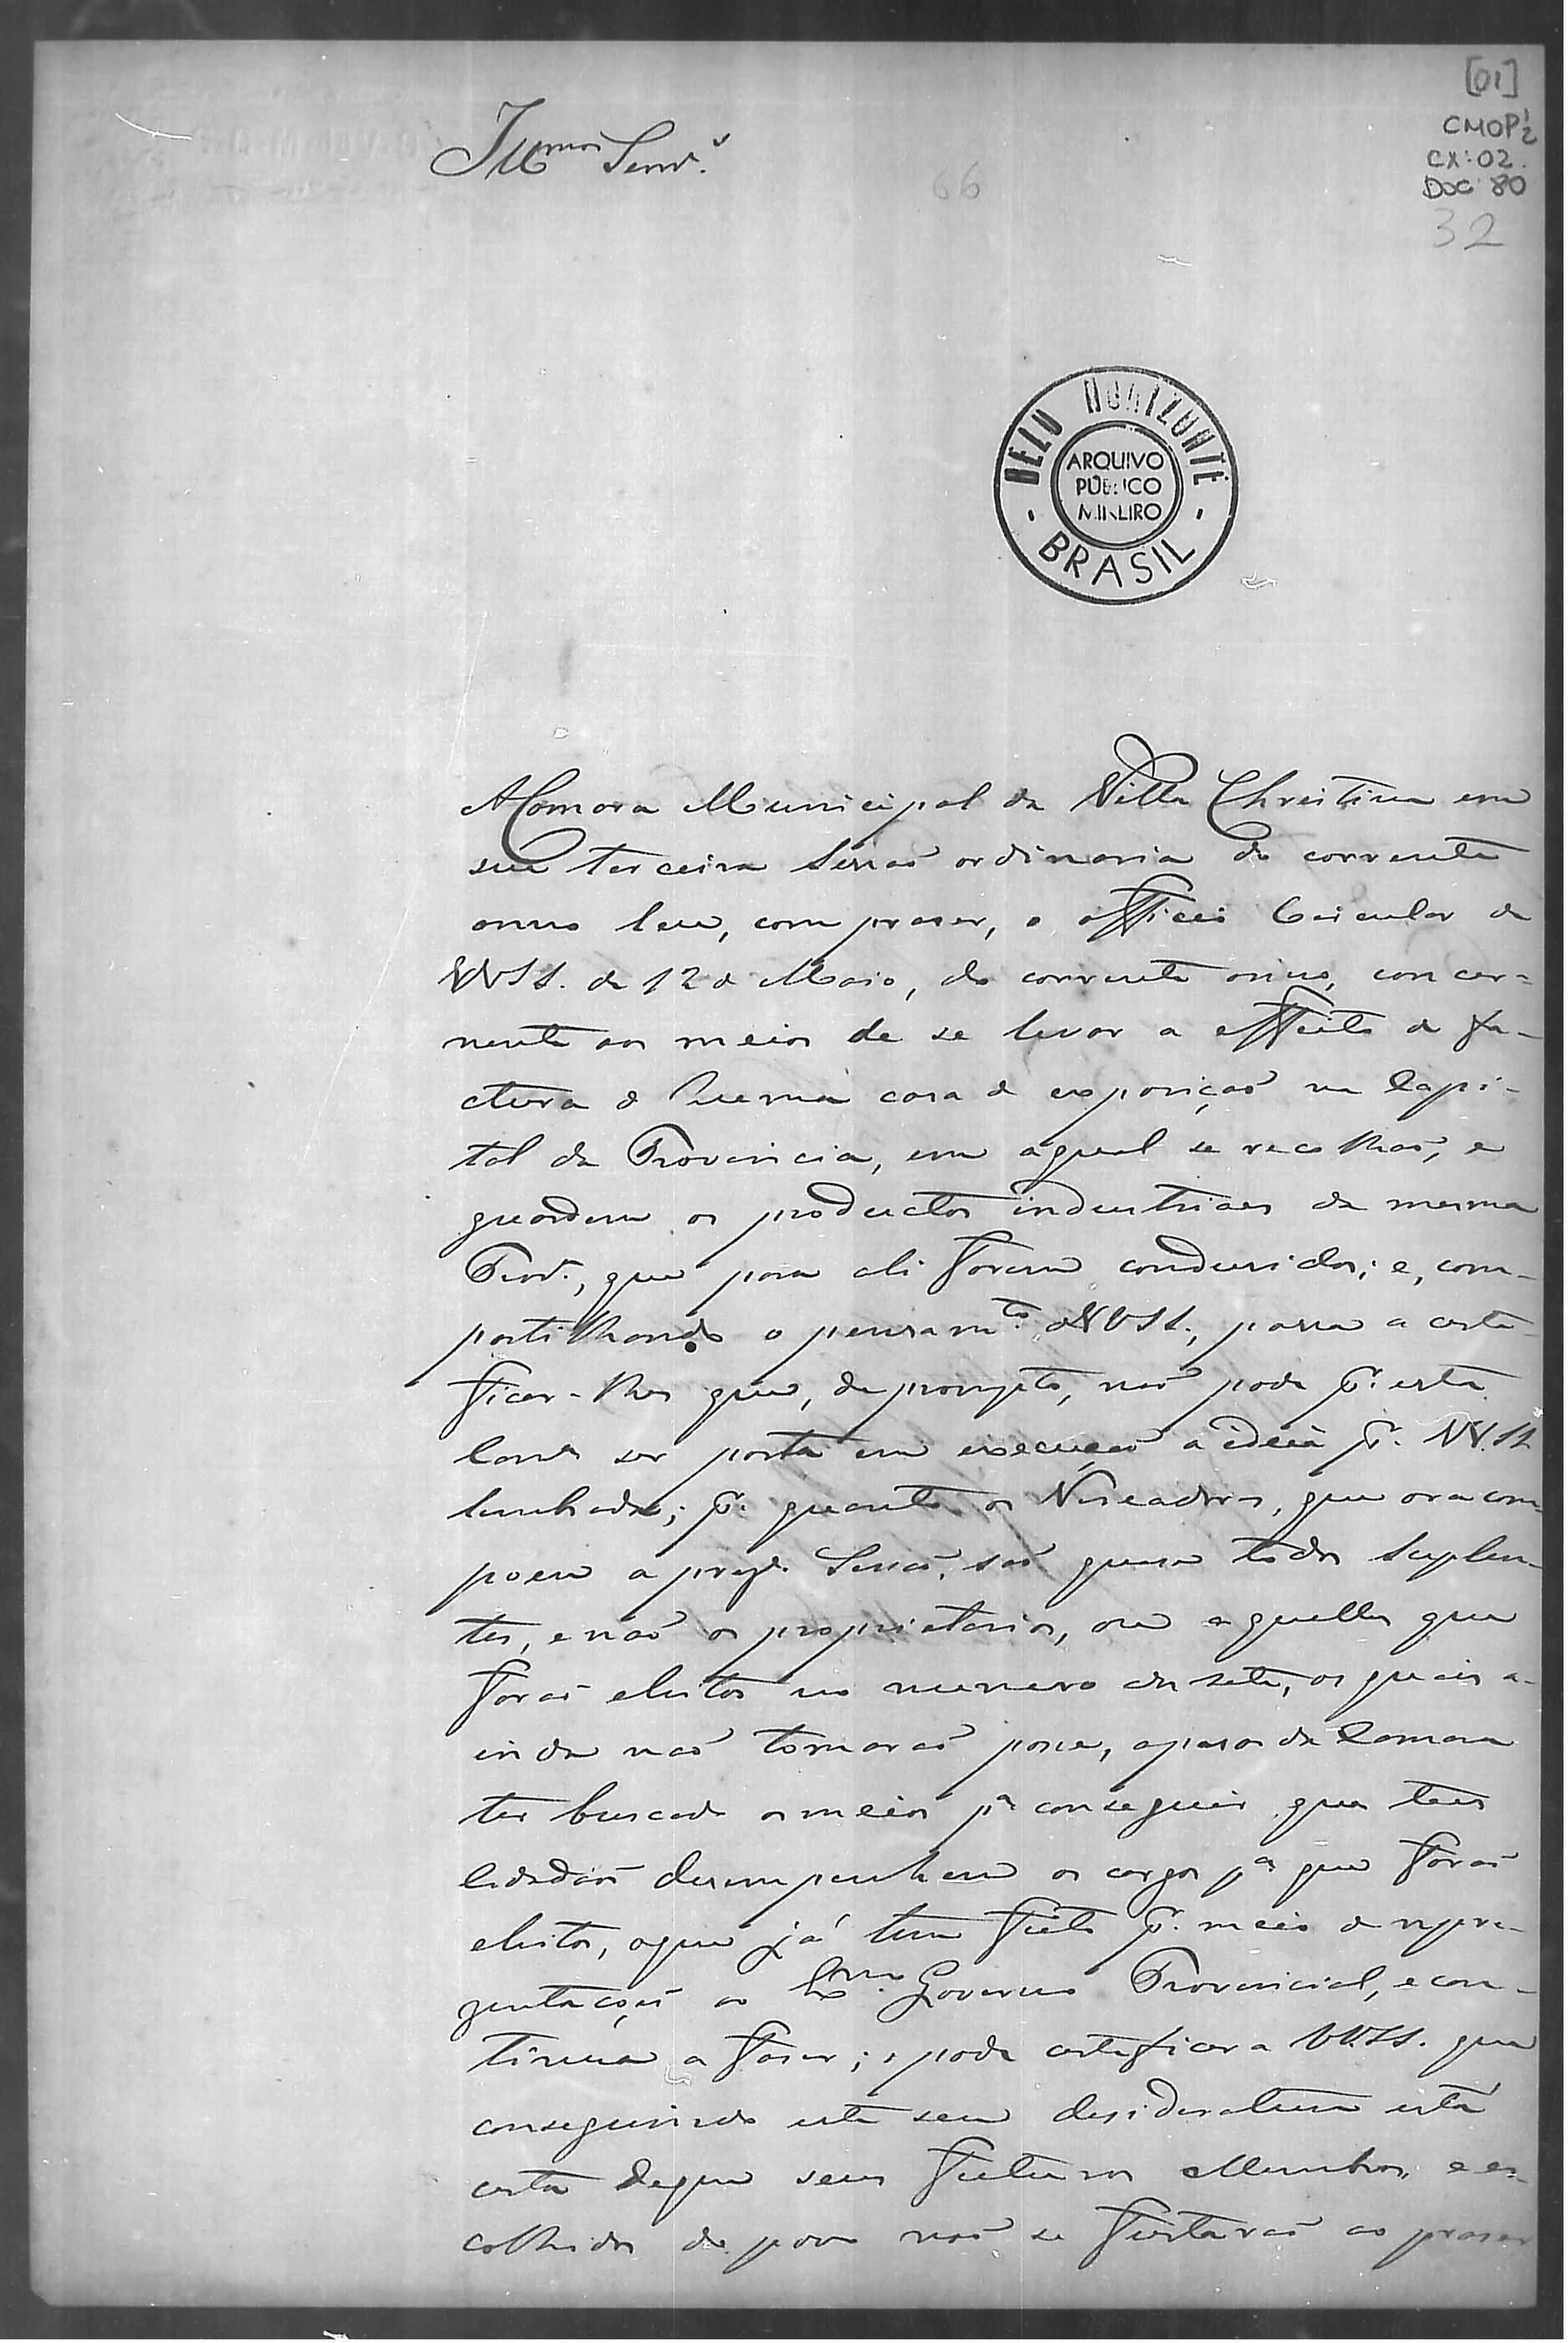 [01]
CMOP 1/2
CX: 02.
DOC 80
32
66
Illmos Senrs.
BELO HORIZONTE
ARQUIVO
PUBLICO
MINEIRO
BRASIL
A Camara Municipal da Villa Christina em
sua terceira Sessaõ ordinaria do corrente
anno leu, com praser, o officio Circular de
VVSS. de 12 de Maio, do corrente anno, concer=
nente aos meios de se levar a effeito a fa-
ctura d'huema casa de exposiçaõ na Capi-
tal da Provincia, em aqual se recolhaõ, e
guardem os productos industriaes da mesma
Provª., que para ali forem condusidos; e, com-
partilhando o pensamto. de VVSS., passa a certi-
ficar-lhes que, de prompto, naõ pode pr. esta
Camª ser posta em execuçaõ a ideia pr. VV.SS
lembrada; pr. quanto os Vereadores, que ora com-
poem a preste. Sessaõ, saõ quase todos suplen-
tes, e naõ os proprietarios, ou aquelles que
foraõ eleitos no numero dos sete, os quaes a-
inda naõ tomaraõ posse, apesar da Camara
ter buscado os meios pa conseguir que taes
Cidadaõs desempenhem os cargos pa que foraõ
eleitos, o que já tem feito pr. meio de repre-
zentaçoẽs ao Exmo. Governo Provincial, e con-
tinúa a faser; e pode certeficar a VV.SS. que
conseguindo este seu desideratum está
certa de que seus futuros Membros, e es-
colhidos do povo naõ se furtaraõ ao praser